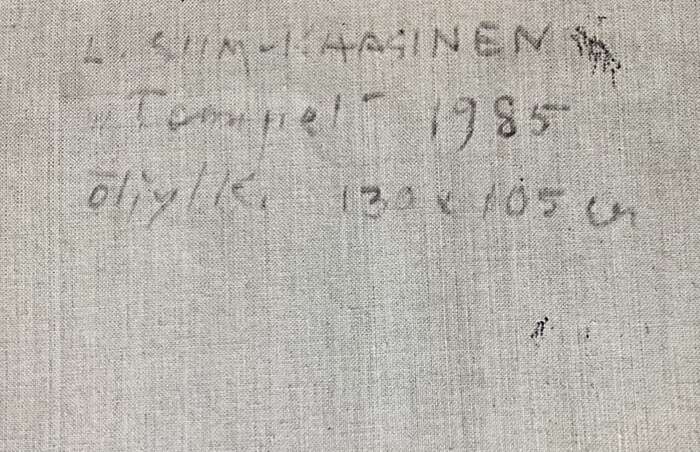 L. SIIM-KAASINEN
"Tempel" 1985
öljy/lk. 130 x 105 cm